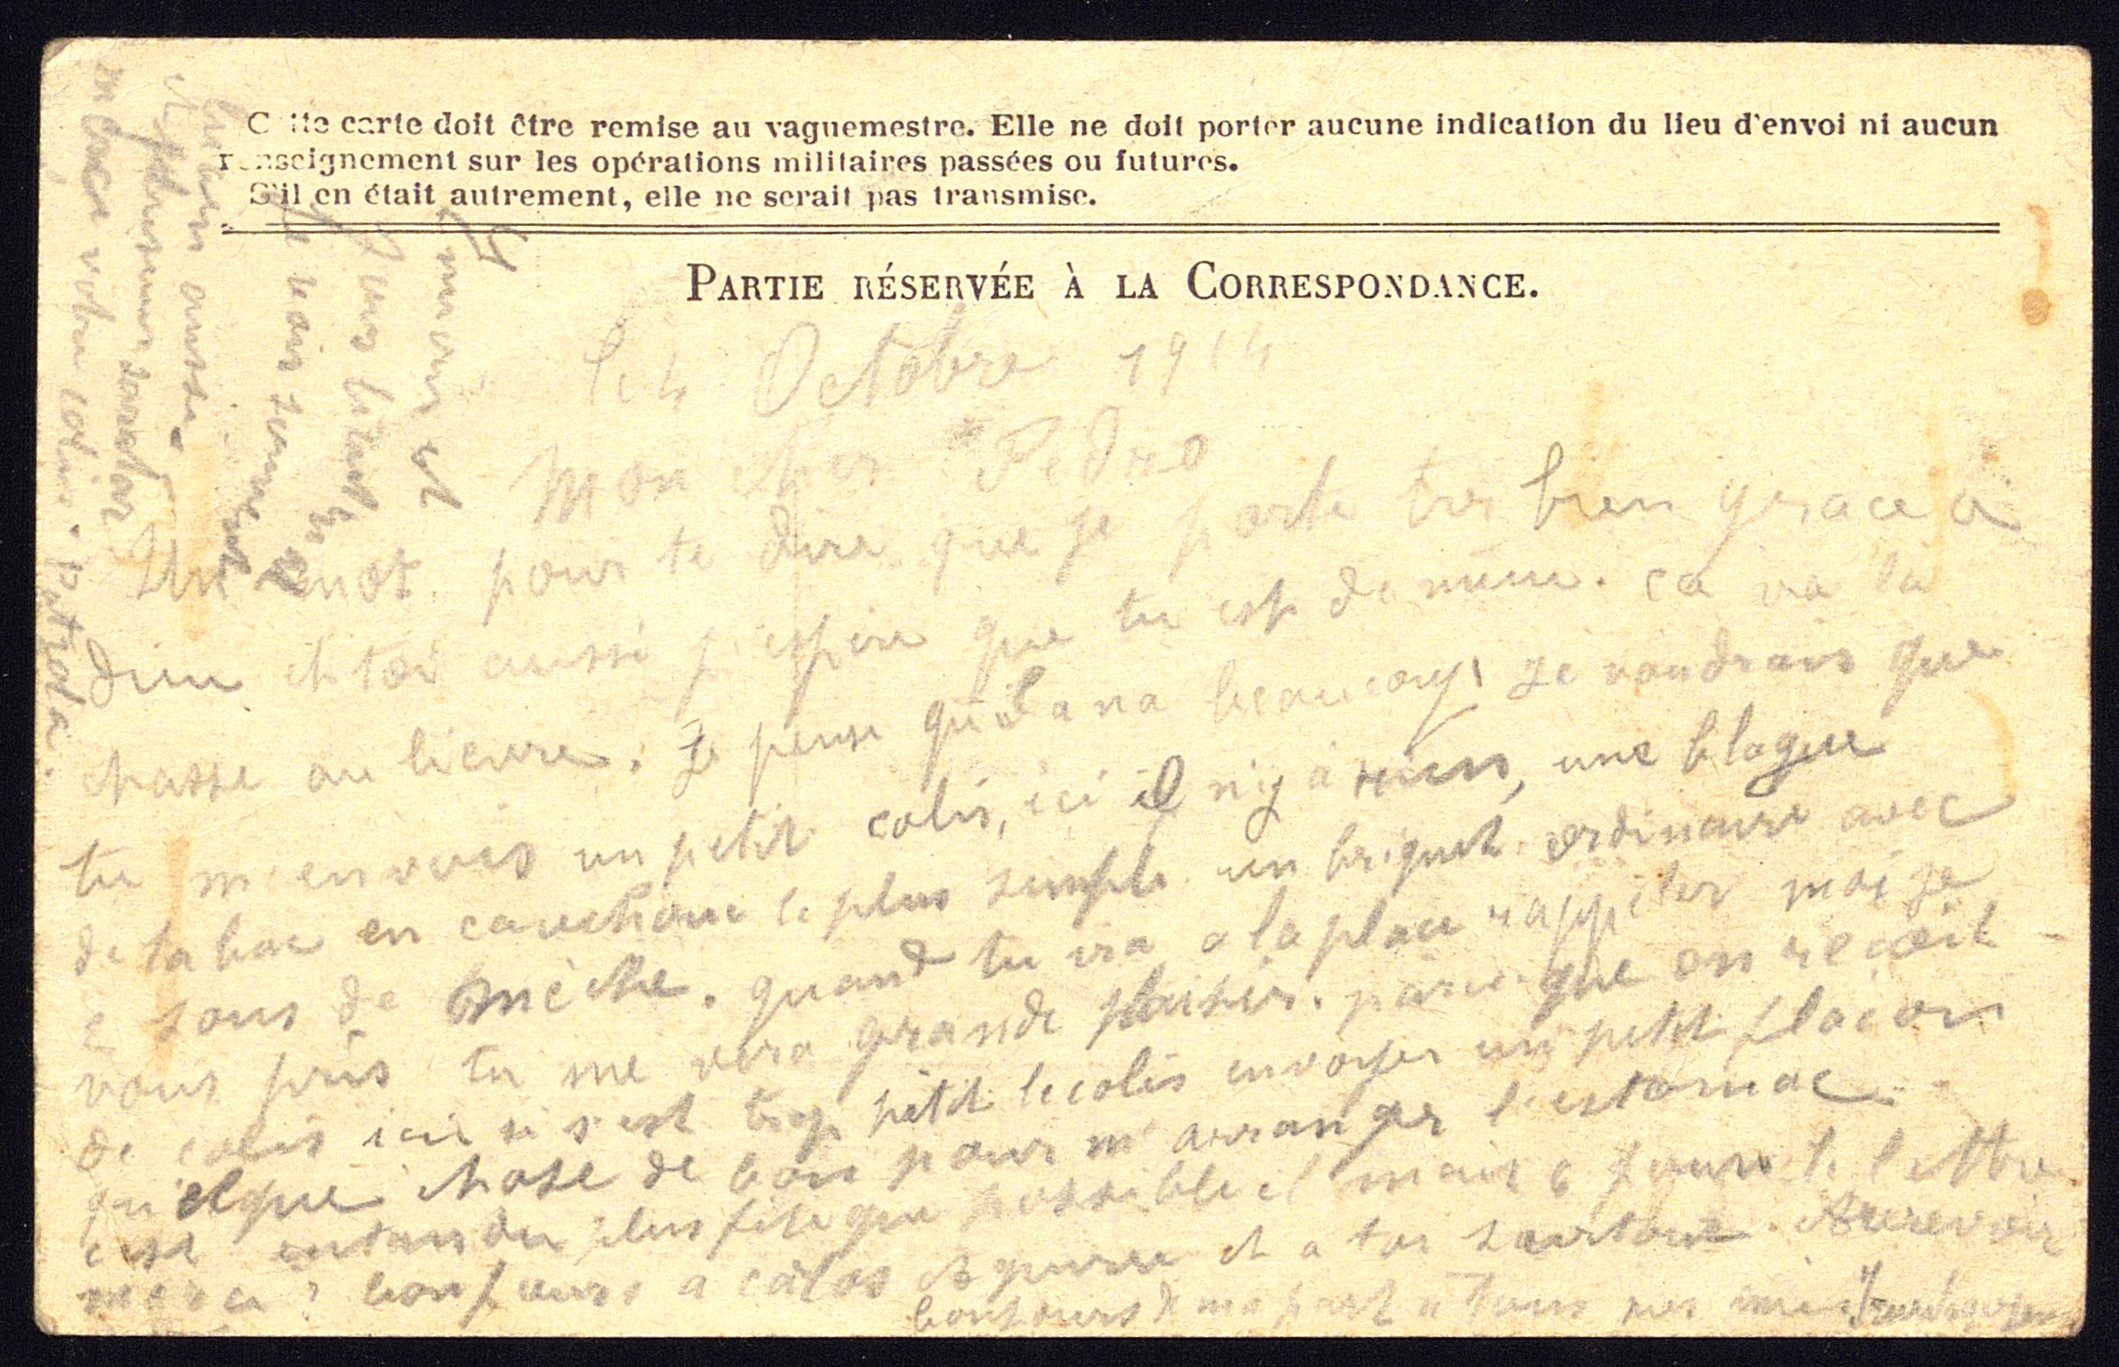 Cette carte doit être remise au vaguemestre. Elle ne doit porter aucune indication du lieu d'envoi ni aucun
renseignement sur les opérations militaires passées ou futures.
S'il en était autrement, elle ne serait pas transmise.
PARTIE RÉSERVÉE À LA CORRESPONDANCE.
le 4 Octobre 1914
Mon cher Pedro
Un mot pour te dire que je porte tres bien grace a
Dieu et toi aussi j'espère que tu est de même. ca va la
chasse au lievre. Je pense qu'il a na beaucoup Je voudrais que
tu m'envois un petit colis, ici il n'y a rien, une blague
de tabac en cauchouc le plus simple un briquet ordinaire avec
2 sous de mèche. quand tu ira a la place rappeler moi je
vous pris tu me vera grande plaisir. parceque on recoit
de colis ici si s'est trop petit le colis envoyer un petit flacon
quelque chose de bon pour m'arranger l'estomac
c'est entandu plus vite que possible et mais 6 jours te lettre
merci bonjours a et a toi surtout. Aurevoir
bonjours de ma part a tous nos amis
et
bien
Je vais
aussi
votre colis. Patroda.